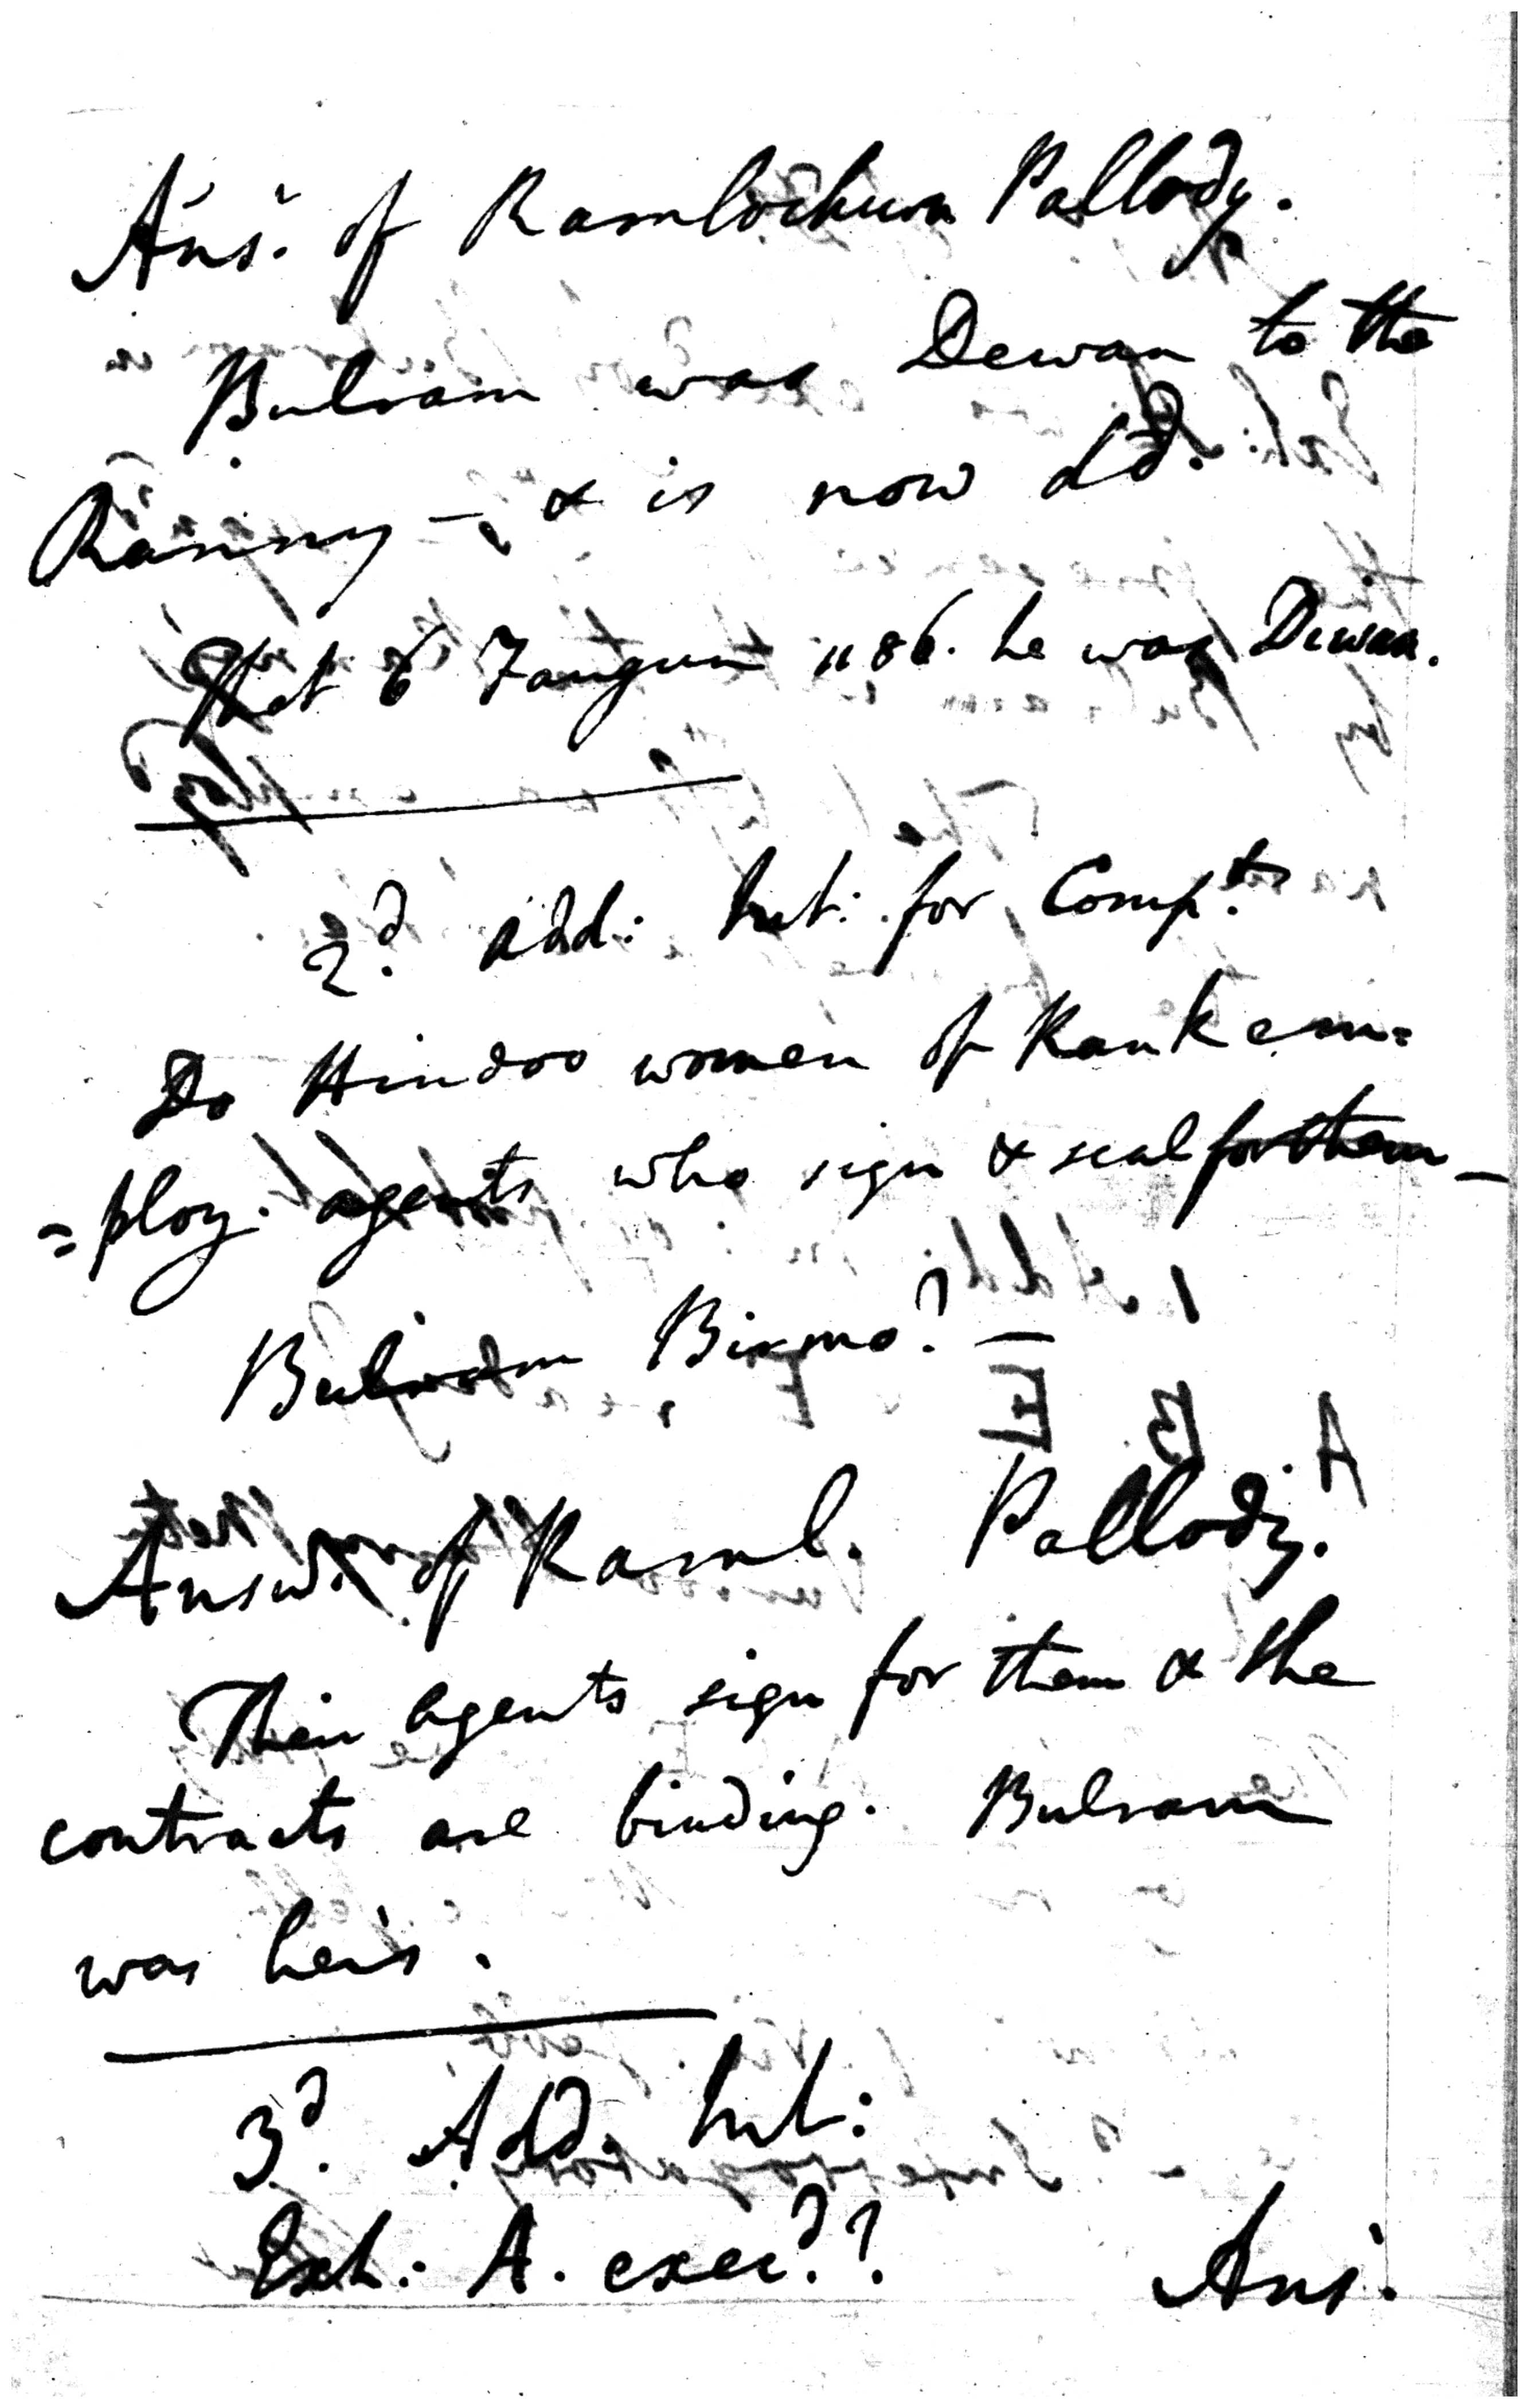 Ans.r of Ramlochun Pallody.
Bulram was Dewan to the
Ranny —, & is now dd.
That 6 Faugun 1186. he was Dewan.
2d. Add: Int: for Compts
Do Hindoo women of Rank em=
=ploy agents who sign & seal for them —
Bulram Birmo? —
Answ. of Raml. Pallody.
Their agents sign for them & the
contracts are binding. Bulram
was her's.
3d. Add. Int:
Exh: A. execd.? Ans.